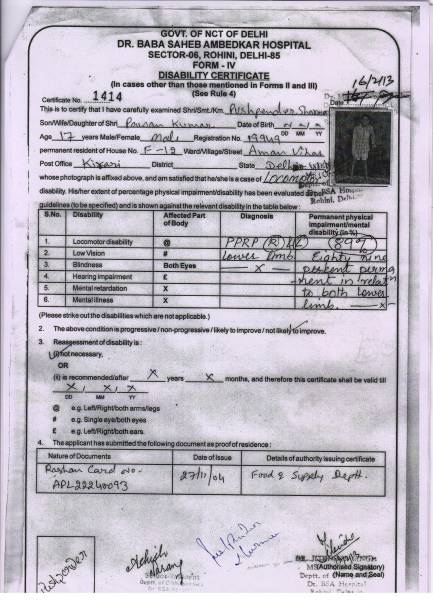 GOVT. OF NCT OF DELHI
DR. BABA SAHEB AMBEDKAR HOSPITAL
SECTOR-06, ROHINI, DELHI-85
FORM - IV
DISABILITY CERTIFICATE
(In cases other than those mentioned in Forms II and III)
(See Rule 4)
16/2/13
Certificate No. 1414
Date
This is to certify that I have carefully examined Shri/Smt./Km. Pushpender Sharma
Son/Wife/Daughter of Shri Pawan Kumar Date of Birth
DD MM YY
Age 17 years Male/Female Male Registration No. 19949
permanent resident of House No. F-12 Ward/Village/Street Aman Vihar
Post Office Kirari District State Delhi
whose photograph is affixed above, and am satisfied that he/she is a case of Locomotor
disability. His/her extent of percentage physical impairment/disability has been evaluated as per
guidelines (to be specified) and is shown against the relevant disability in the table below :
BSA Hospital
Rohini, Delhi
S.No. Disability Affected Part of Body Diagnosis Permanent physical impairment/mental disability (in %)
1. Locomotor disability @ PPRP (R) LL 89%
2. Low Vision # Lower limb Eighty nine
3. Blindness Both Eyes — X — percent perma
4. Hearing impairment £ nent in relatn
5. Mental retardation X to both lower
6. Mental illness X limb. — x —
(Please strike out the disabilities which are not applicable.)
2. The above condition is progressive / non-progressive / likely to improve / not likely to improve.
3. Reassessment of disability is :
(i) not necessary,
OR
(ii) is recommended/after X years X months, and therefore this certificate shall be valid till
X, X, X
DD MM YY
@ e.g. Left/Right/both arms/legs
# e.g. Single eye/both eyes
£ e.g. Left/Right/both ears.
4. The applicant has submitted the following document as proof of residence :
Nature of Documents Date of Issue Details of authority issuing certificate
Rashan Card No- 27/11/04 Food & Supply Deptt.
APL22240093
Pushpender
(Authorised Signatory)
(Name and Seal)
Deptt. of
BSA Hospital